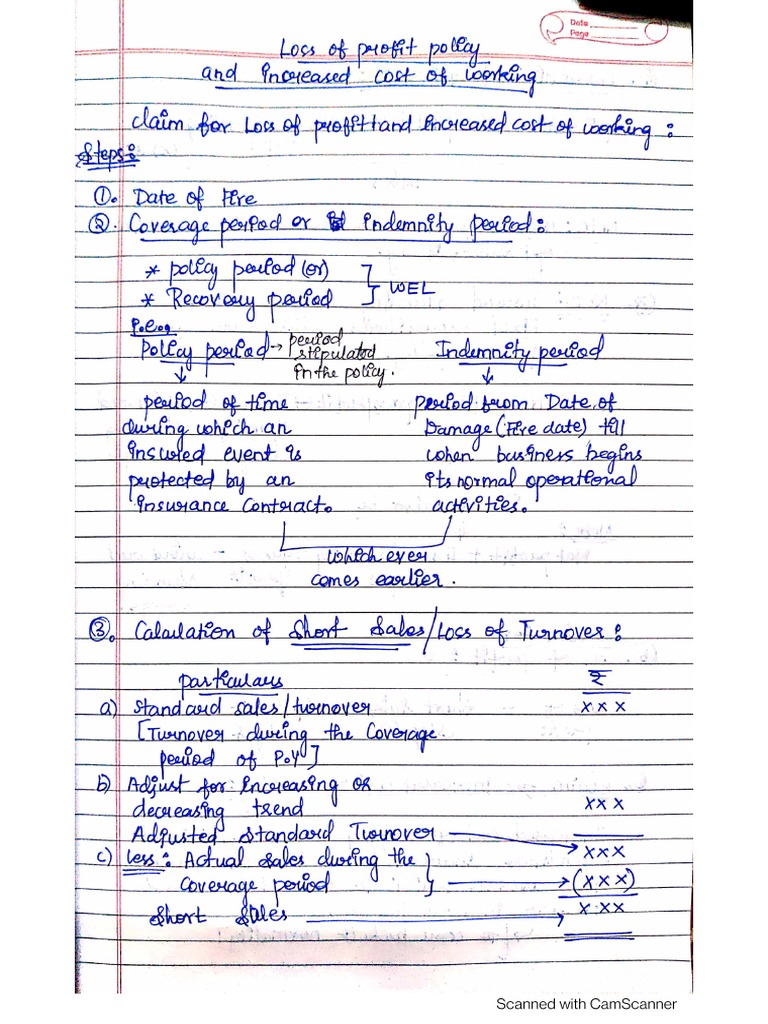 Date
Page
Loss of profit policy
and increased cost of working
Claim for Loss of profit and increased cost of working :
Steps :
①. Date of Fire
②. Coverage period or indemnity period :
* policy period (or)
* Recovery period ] WEL
Policy
Policy period → period stipulated in the policy.
Indemnity period
period of time during which an insured event is protected by an insurance contract.
period from Date of Damage (Fire date) till when business begins its normal operational activities.
which ever
comes earlier.
③. Calculation of Short Sales/Loss of Turnover :
particulars ₹
a) Standard sales/turnover x x x
[Turnover during the Coverage
period of P.Y]
b) Adjust for increasing or
decreasing trend xxx
Adjusted Standard Turnover → xxx
c) Less : Actual sales during the
coverage period → (xxx)
Short Sales → x.xx
Scanned with CamScanner